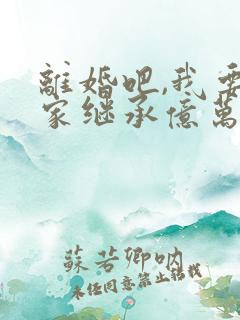 離婚吧,我要
家继承億萬
蘇若卿呐
未经同意禁止转载